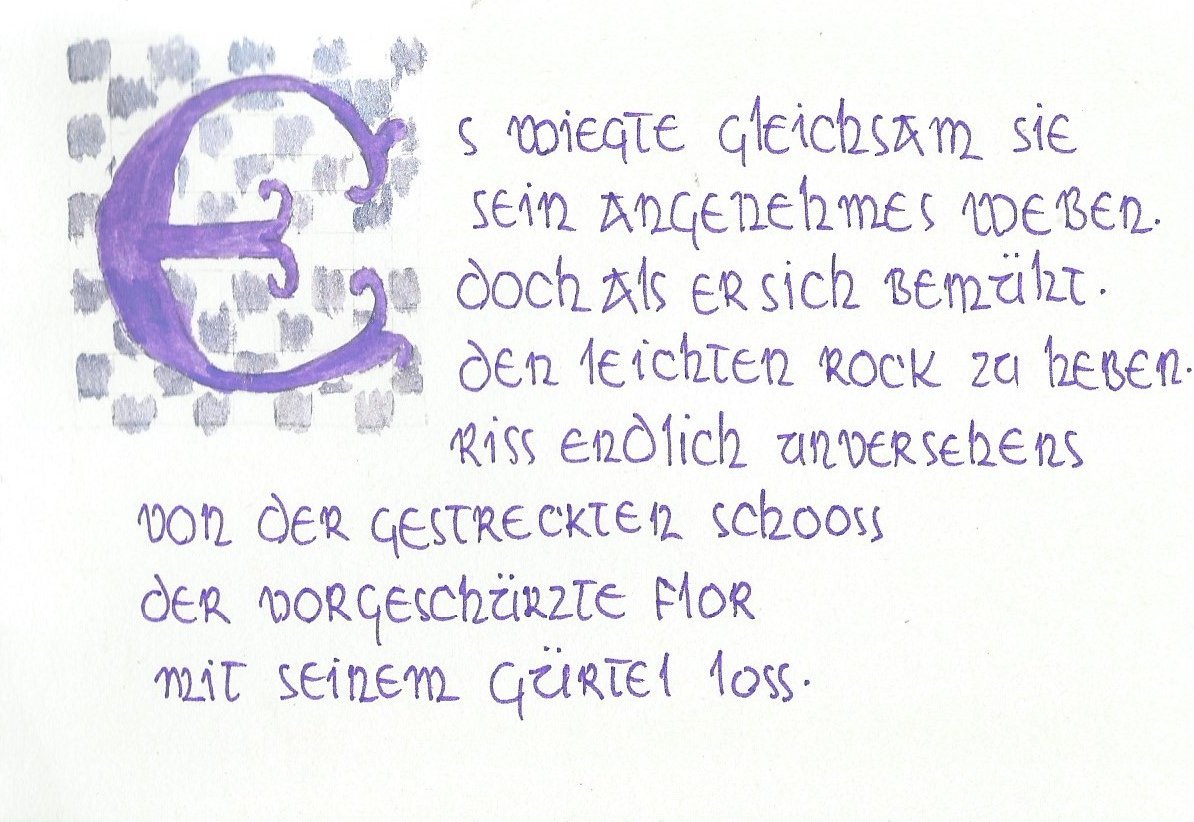 Es wiegte gleichsam sie
sein angenehmes weben.
doch als er sich bemüht.
den leichten rock zu heben.
riss endlich unversehens
von der gestreckten schooss
der vorgeschürzte flor
mit seinem gürtel loss.